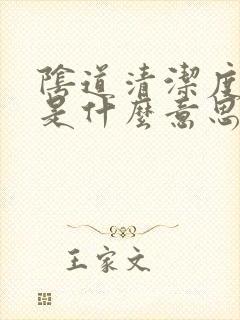 陰道清潔度
是什麼意思
王家文